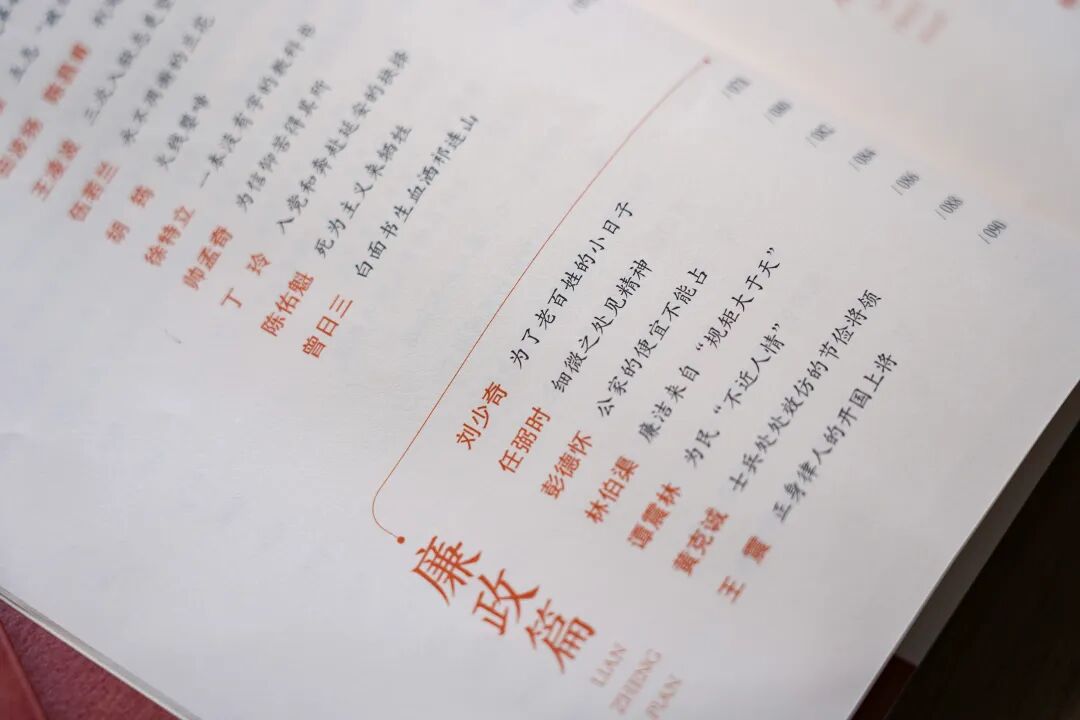 陈昌甫
王凌波 三次入狱志更
伍若兰 永不凋谢的兰花
胡筠 火线婴啼
徐特立 一本没有字的教科书
帅孟奇 为信仰苦得其所
丁玲 入党和奔赴延安的抉择
陈佑魁 死为主义来牺牲
曾日三 白面书生血洒祁连山
廉政篇
LIAN
ZHENG
PIAN
刘少奇 为了老百姓的小日子
任弼时 细微之处见精神
彭德怀 公家的便宜不能占
林伯渠 廉洁来自“规矩大于天”
谭震林 为民“不近人情”
黄克诚 士兵处处效仿的节俭将领
王震 正身律人的开国上将
/080
/082
/084
/086
/088
/090